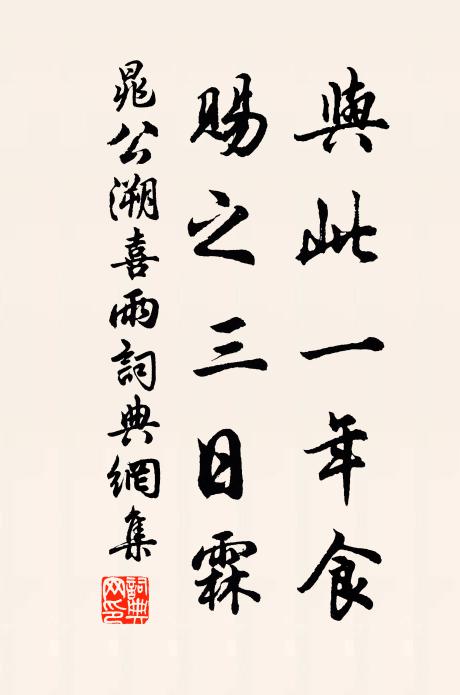 與此一年食
賜之三日霖
晁公溯喜雨詞典網集
詞典網印